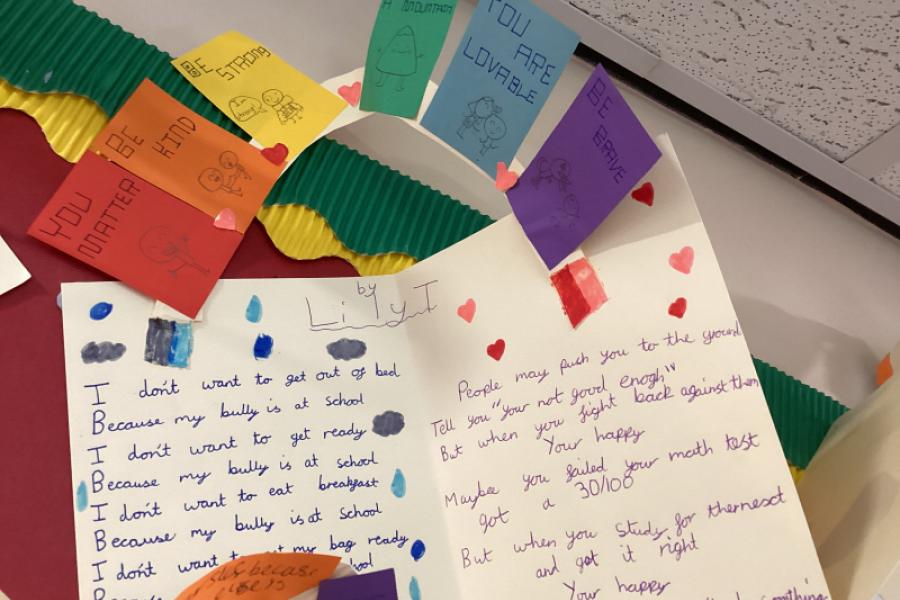 YOU
MATTER
BE
KIND
BE
STRONG
I am
strong!
A MOUNTAIN
YOU
ARE
LOVABLE
BE
BRAVE
by
Lily I
I don't want to get out of bed
Because my bully is at school
I don't want to get ready
Because my bully is at school
I don't want to eat breakfast
Because my bully is at school
I don't want my bag ready
People may push you to the ground
Tell you "your not good enogh"
But when you fight back against them
Your happy
Maybee you failed your math test
got a 30/100
But when you study for thernesct
and got it right
Your happy